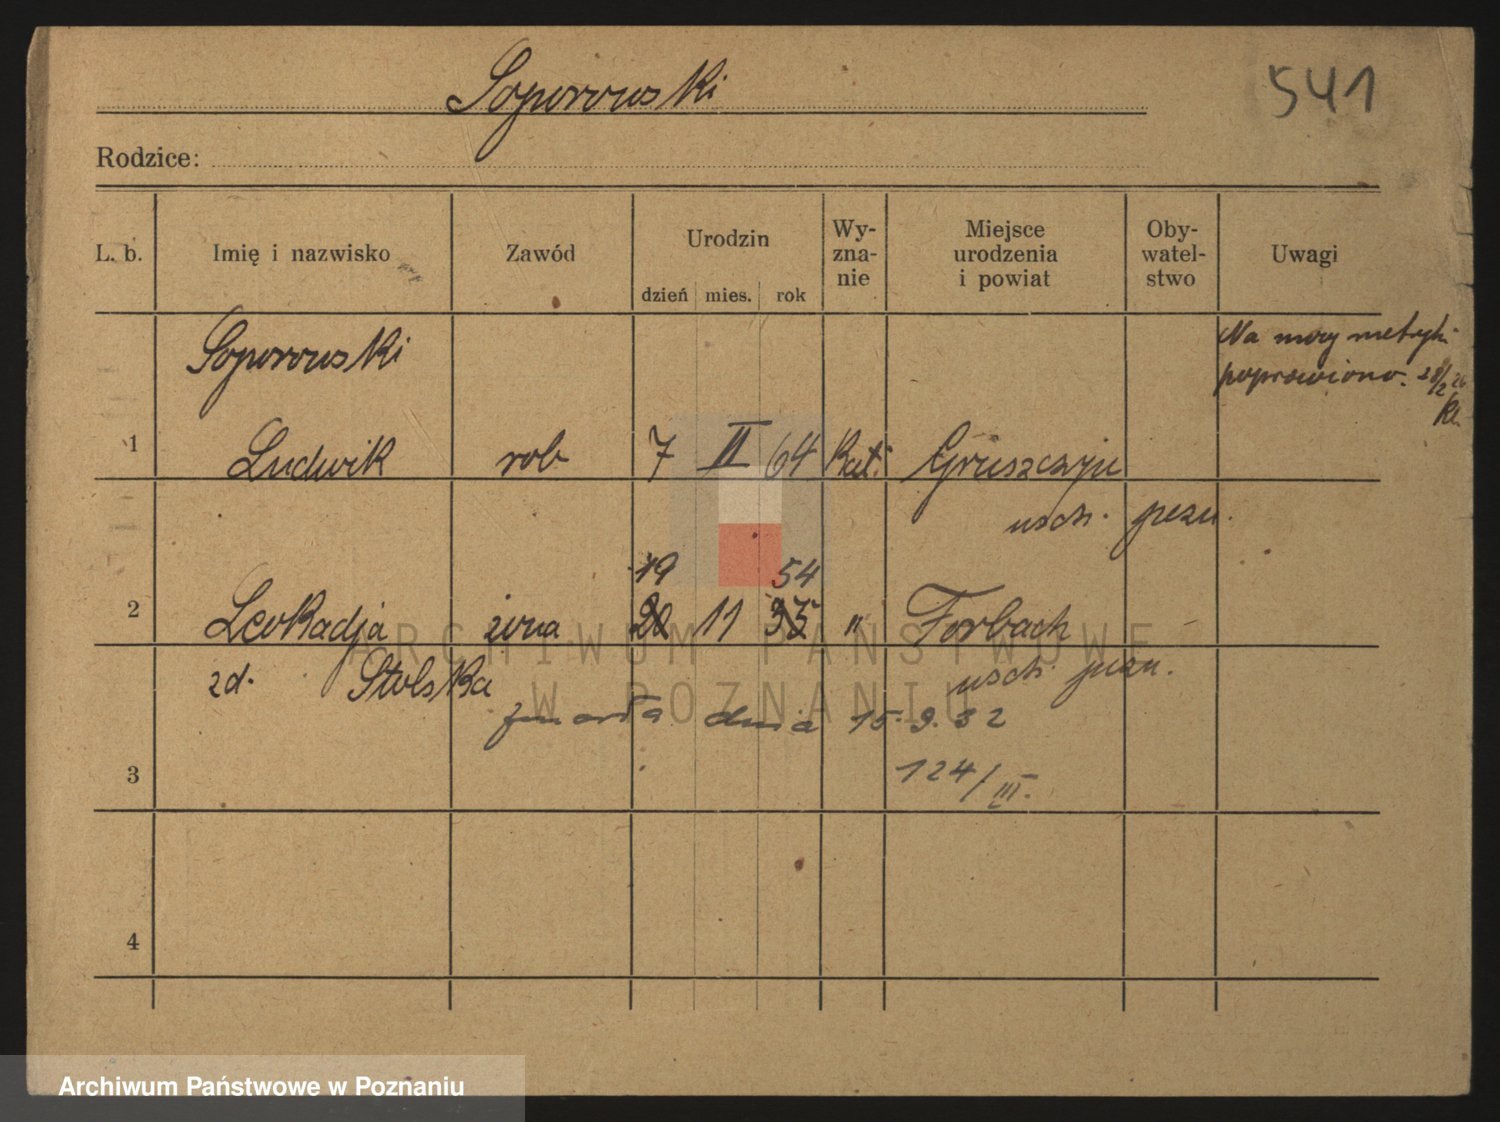 Soporowski
541
Rodzice:
L. b.
Imię i nazwisko
Zawód
Urodzin
dzień mies. rok
Wy-
zna-
nie
Miejsce
urodzenia
i powiat
Oby-
watel-
stwo
Uwagi
Soporowski
Na mocy metryki
poprawiono. 28/2 26
1 Ludwik rob 7 II 64 Kat.
wsch. pozn.
19 54
2 Leokadja żona 20 11 35 " Forbach
zd. Stolska wsch. pozn.
zmarła dnia 15.9.32
3 124/III.
4
ARCHIWUM PAŃSTWOWE
W POZNANIU
Archiwum Państwowe w Poznaniu